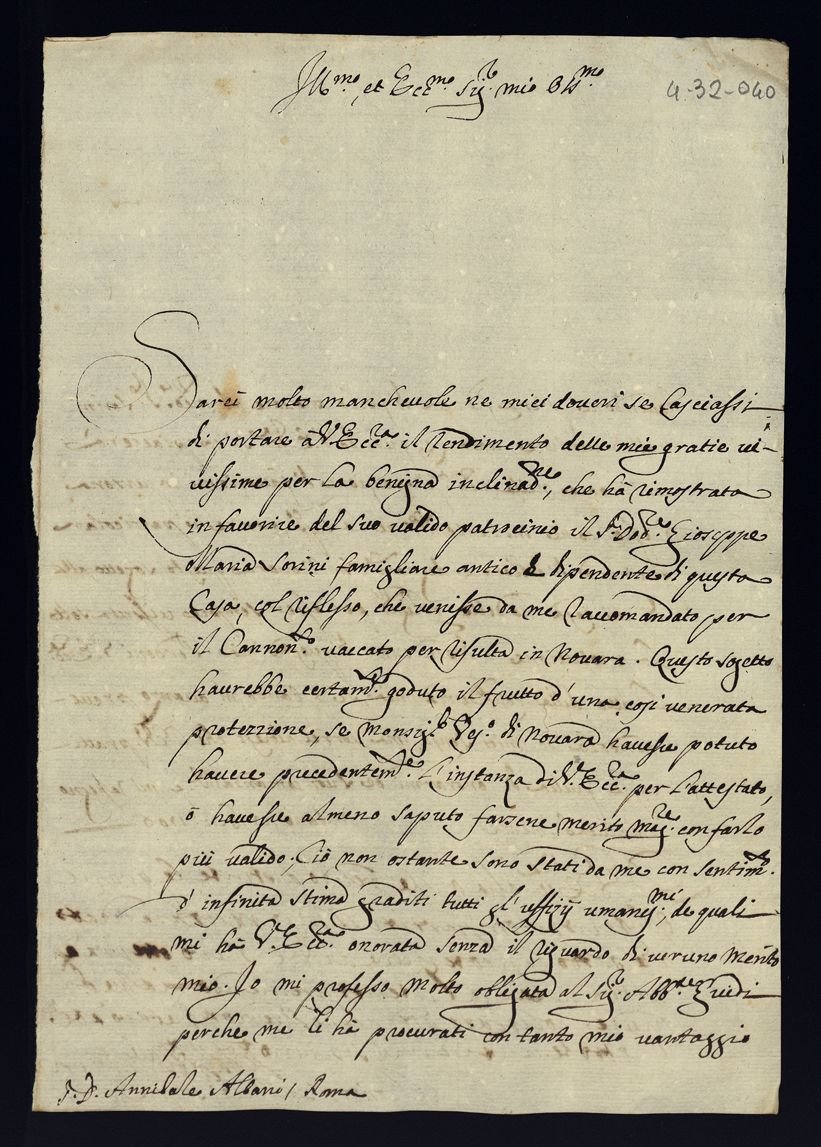 Ill.mo, et Ecc.mo Sig.r mio Oss.mo
4-32-040
Sarei molto manchevole ne miei doveri se lasciassi
di portare à V. Ecc.za il rendimento delle mie gratie vi-
vissime per la benigna inclinaz.ne, che hà rimostrata
in favorire del suo valido patrocinio il S.r Dod.re Gioseppe
Maria Sorini famigliare antico e dipendente di questa
Casa, col riflesso, che venisse da me raccomandato per
il Cannon.to vaccato per risulta in Novara. Questo sogetto
haurebbe certam.te goduto il frutto d'una così venerata
protezzione, se Monsig.r Vesc.o di Novara havesse potuto
havere precedentem.te l'instanza di V. Ecc.za per l'attestato,
ò havesse almeno saputo farsene merito mag.re con farlo
più valido; Ciò non ostante sono stati da me con sentim.to
d'infinita stima graditi tutti gl'uffizij umaniss.mi, de quali
mi hà V. Ecc.za onorata senza il riguardo di veruno merito
mio. Io mi professo molto obligata al Sig.r Abb.te Guidi
perche me li hà procurati con tanto mio vantaggio
S. D. Annibale Albani / Roma